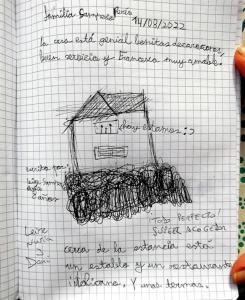 Familia Sampedro Pinto
14/08/2022
la casa está genial bonitas decoraciones,
buen servicio y Francesco muy amable.
¡hoy estamos :)
escrito por:
años
Leire
Nuria
y
Dani
TODO PERFECTO!
SUPER ACOGEDOR
cerca de la estancia está
un establo y un restaurante
italiano. Y unas termas.